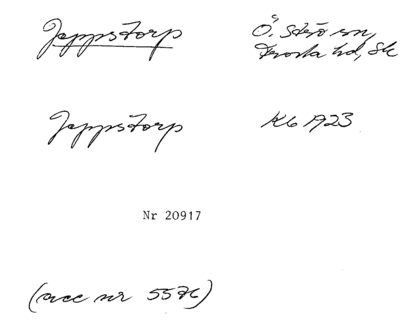 Jeppstorp Ö. Strö sn,
Frosta hd, Sk
Jeppstorp Kb 1923
Nr 20917
(acc nr 5576)